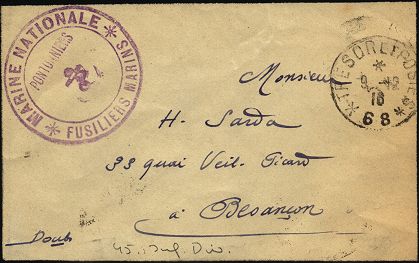 MARINE NATIONALE
FUSILIERS MARINS
PONTONNIERS
TRESOR ET POSTES
9 - 12
16
68
Monsieur
H. Sarda
33 quai Veil-Picard
à Besançon
Doubs
45. Inf. Div.